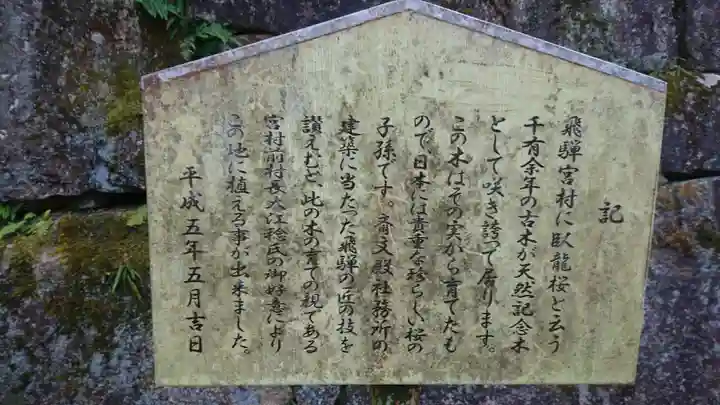 記
飛騨宮村に臥龍桜と云う
千有余年の古木が天然記念木
として咲き誇って居ります。
この木はその実から育てたも
ので、日本には貴重な珍らしい桜の
子孫です。斎文殿社務所の
建築に当たった飛騨の匠の技を
讃えむと、此の木の育ての親である
宮村前村長大江稔氏の御好意により
この地に植える事が出来ました。
平成五年五月吉日